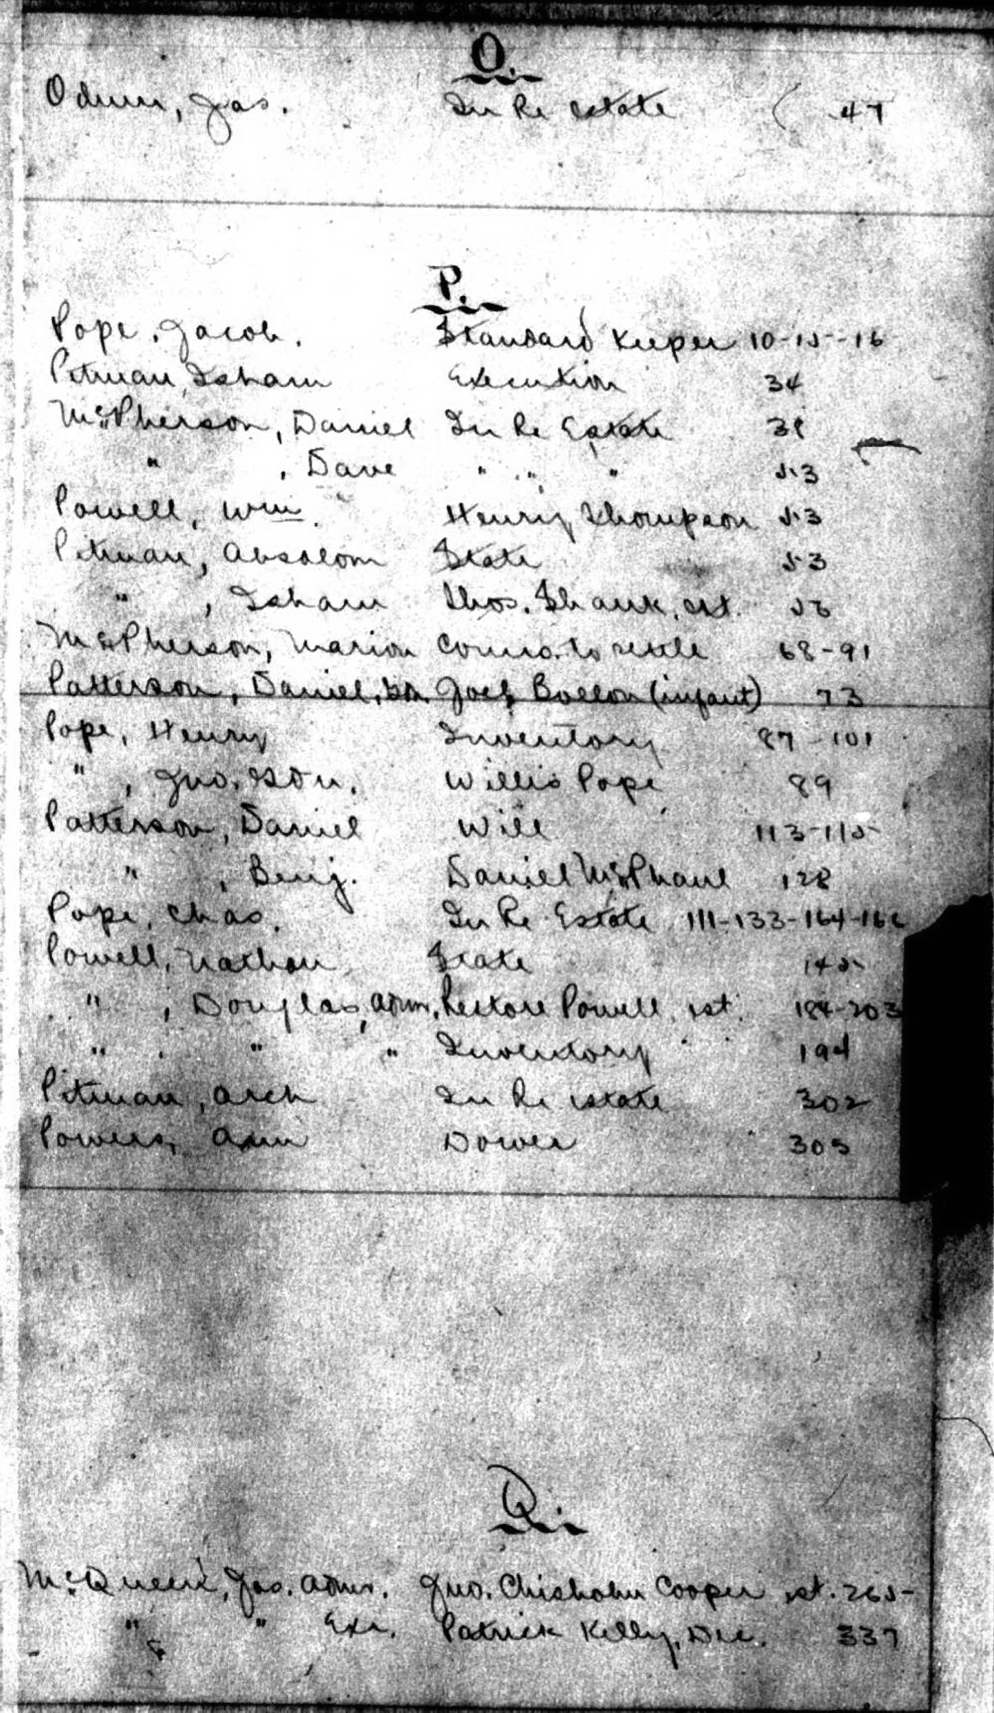 O.
Odum, Jas. In Re estate 47
P.
Pope, Jacob. Standard Keeper 10-15-16
Pitman, Isham Execution 34
McPherson, Daniel In Re Estate 39
" , Dave " " " 53
Powell, Wm. Henry Thompson 53
Pitman, Absalom State 53
" , Isham Thos. Shank, est. 56
McPherson, Marion Comrs. to settle 68-91
Patterson, Daniel, gdn. Joel (infant) 73
Pope, Henry Inventory 87-101
" , Jno. gdn. Willis Pope 89
Patterson, Daniel Will 113-115
" , Benj. Daniel McPhaul 128
Pope, Chas. In Re Estate 111-133-164-166
Powell, Nathan State 145
" , Douglas, Adm. Restore Powell, est. 184-203
" , " " Inventory 194
Pitman, Arch In Re estate 302
Powers, Ann Dower 305
Q.
McQueen, Jas. Adm. Jno. Chisholm Cooper est. 265-
" " Exr. Patrick Kelly, Dec. 337